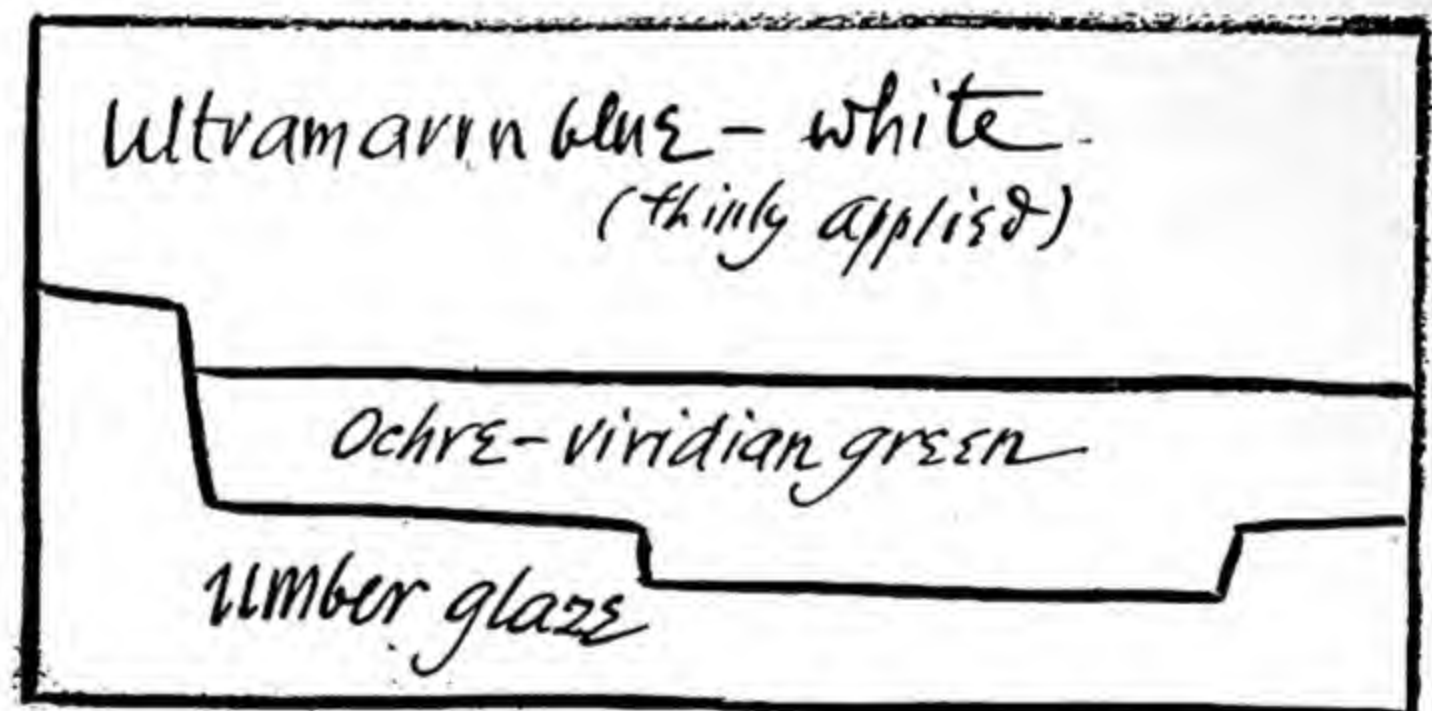 Ultramarin blue – white
(thinly applied)
Ochre – viridian green
Umber glaze